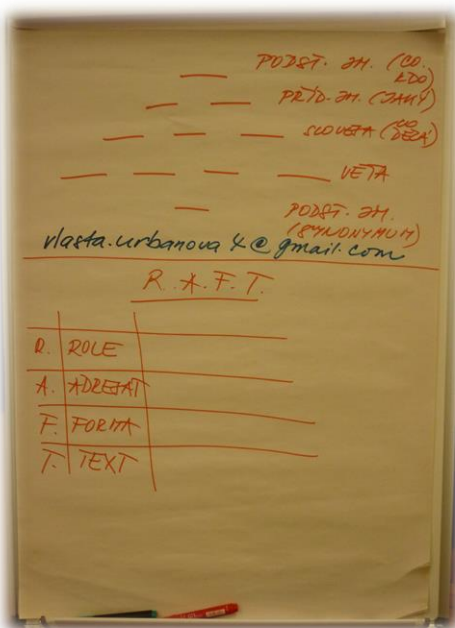 PODST. JM. (CO, KDO)
PŘÍD. JM. (JAKÝ)
SLOVESA (CO DĚLÁ)
VĚTA
PODST. JM. (SYNONYMUM)
vlasta.urbanova4@gmail.com
R.A.F.T.
R. ROLE
A. ADRESÁT
F. FORMA
T. TEXT